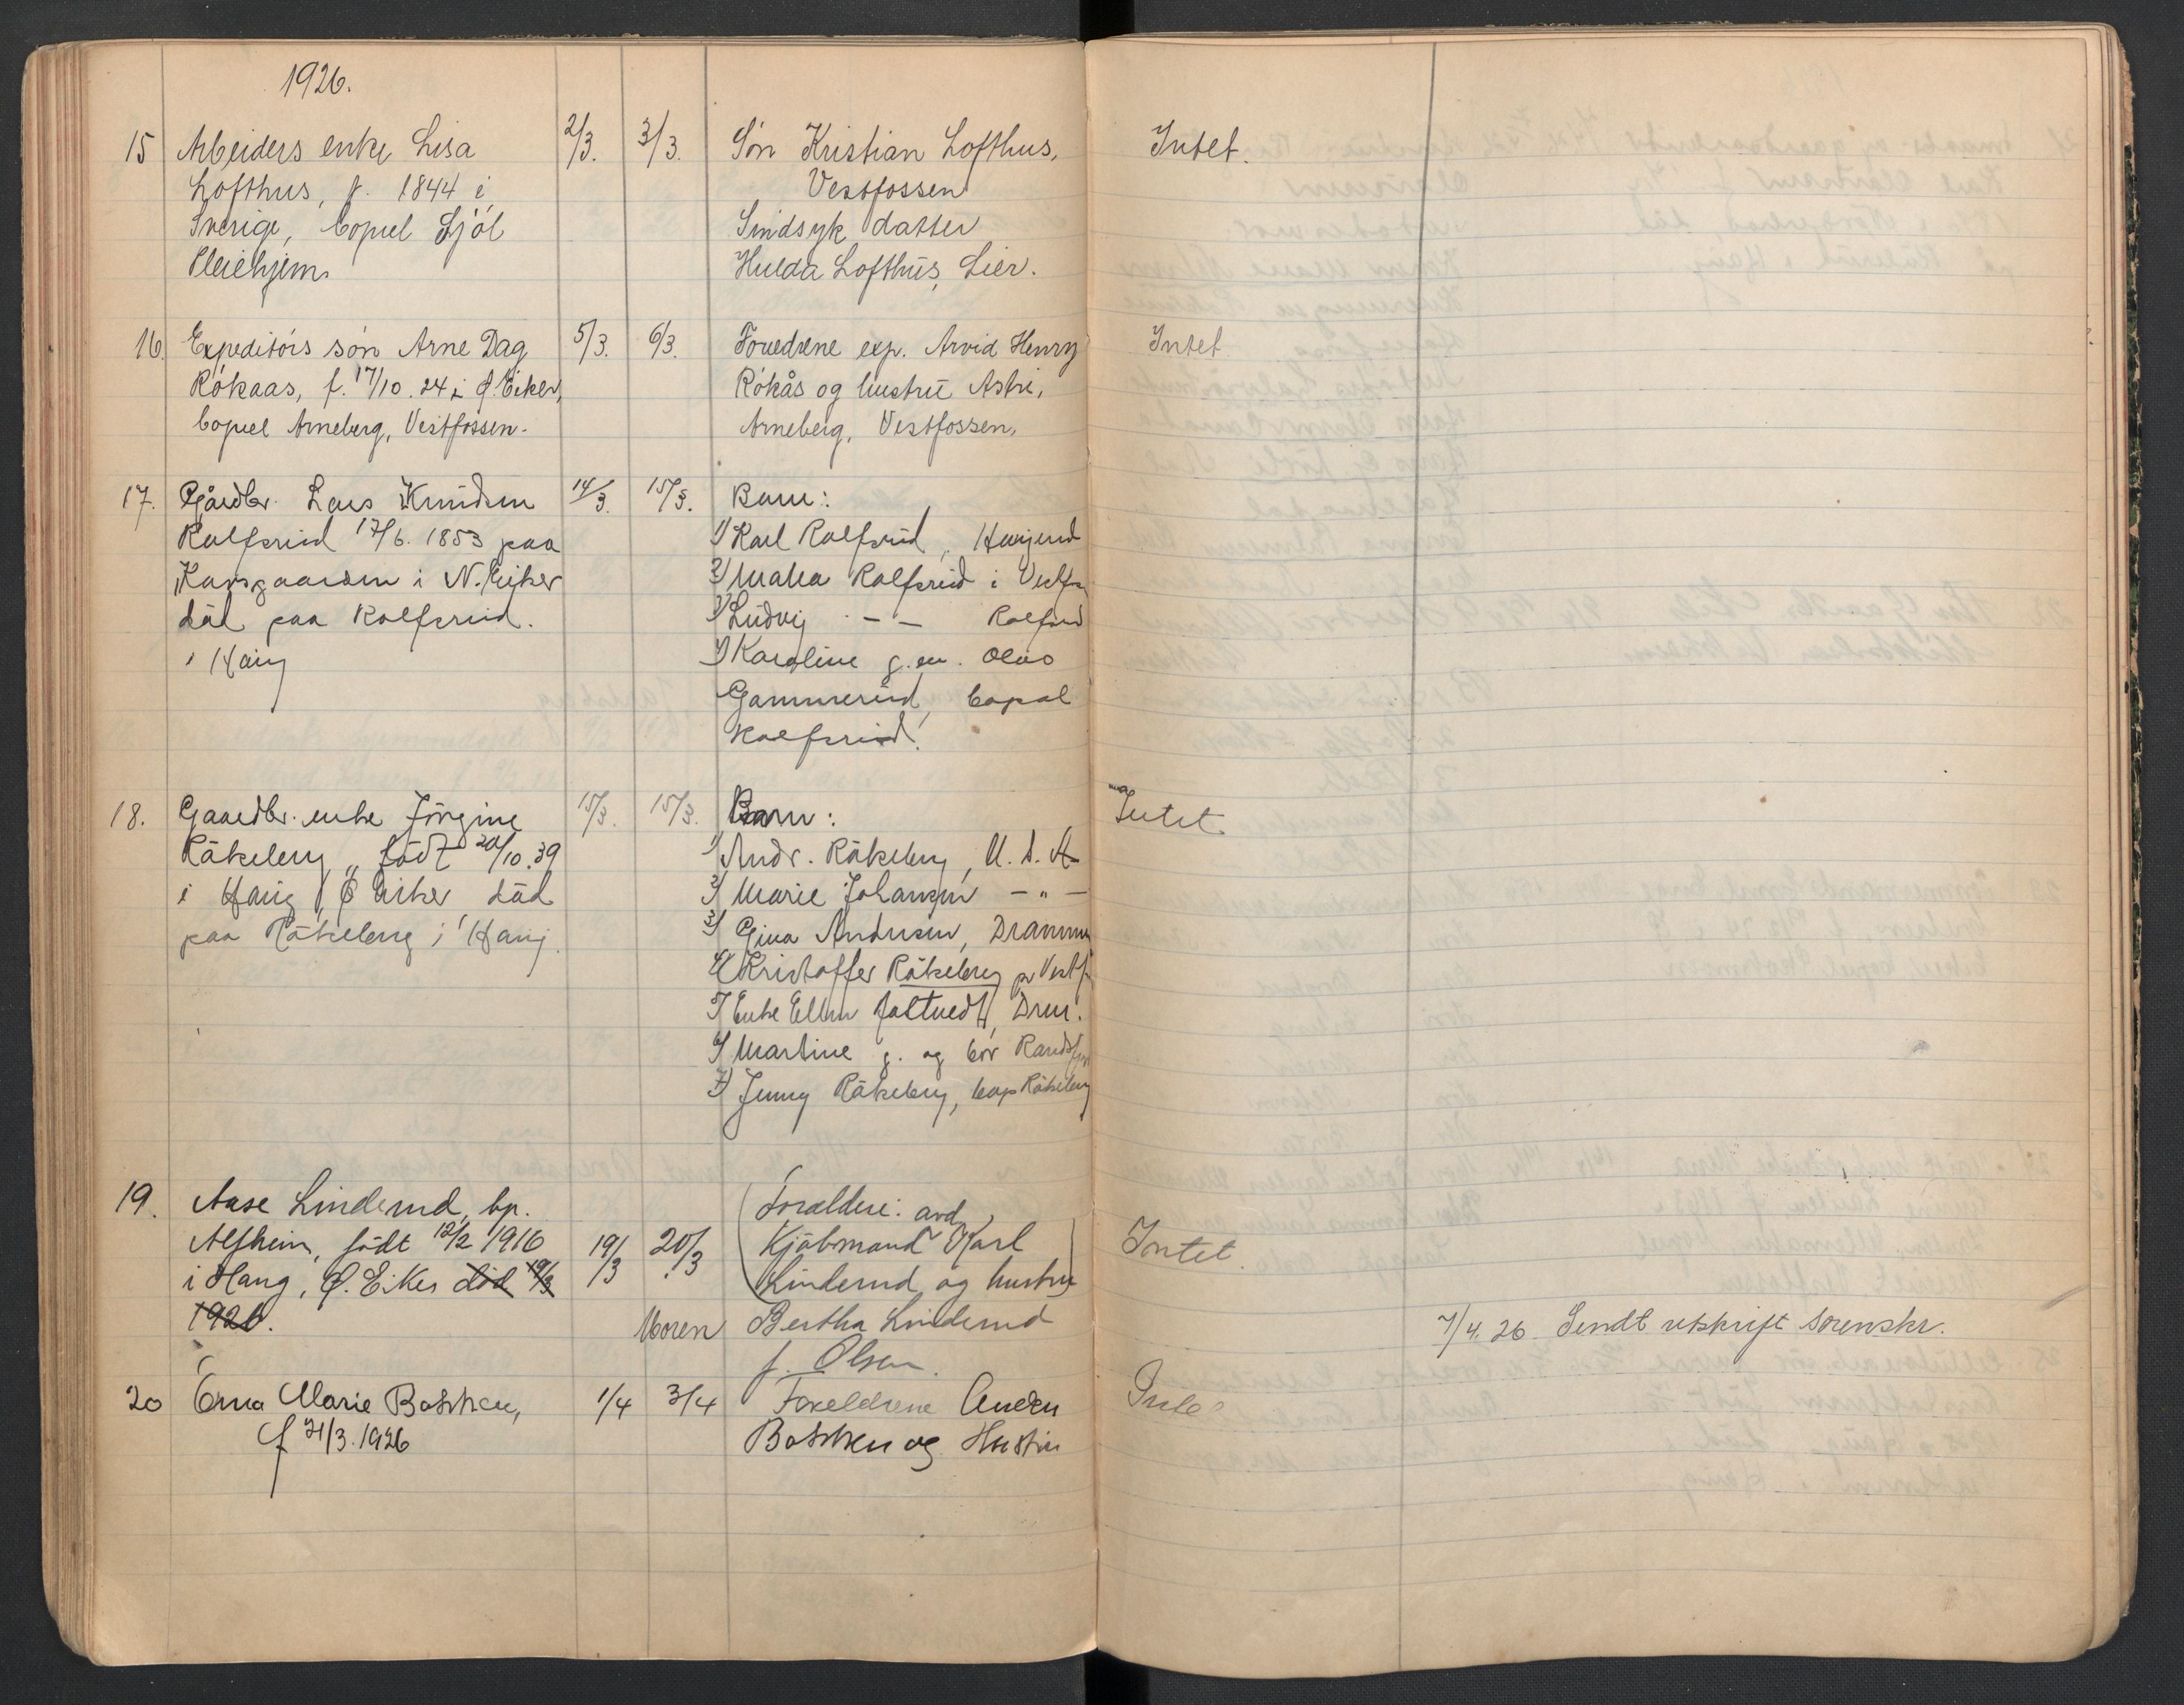 1926.
15 Arbeiders enke Lisa 2/3. 3/3. Søn Kristian Lofthus, Intet.
Lofthus, f. 1844 i Vestfossen
Sverige, bopæl Sjøl Sindsyk datter
Pleiehjem. Hulda Lofthus, Lier.
16. Expeditørs søn Arne Dag 5/3. 6/3. Forældrene exp. Arvid Henry Intet
Røkaas, f. 17/10. 24 i Ø. Eiker, Røkås og hustru Astri,
bopæl Arneberg, Vestfossen. Arneberg, Vestfossen.
17. Gårdbr. Lars Knudsen 14/3. 15/3. Barn:
Rolfsrud 17/6. 1853 paa 1) Karl Rolfsrud,
i N. Eiker 2) Rolfsrud i Vestf
död paa Rolfsrud. 3) Ludvig - - Rolfsrud
i Haug 4) Karoline g. m. Olius
Gammerud, bopæl
Rolfsrud.
18. Gaardbr. enke Jörgine 15/3. 15/3. Barn: Intet
Råkeberg, födt 20/10. 39 1) Andr. Råkeberg, U. S. A
i Haug, Ö Eiker död 2) Marie Johansen - " -
paa Råkeberg i Haug. 3) Gina Andersen, Drammen
4) Kristoffer Råkeberg pr Vestf.
5) Enke Ellen Drm.
6) Martine g. og bor Randsfj
7) Jenny Råkeberg, bop Råkeberg
19. Aase Linderud, bp. Forældre: avd
Alfheim, födt 12/2 1916 19/3 20/3 Kjøbmand Karl Intet.
i Haug, Ø. Eiker död 19/3 Linderud og hustru
1926. Moren Bertha Linderud 7/4. 26. Sendt utskrift Sorenskr.
f. Olsen.
20 Erna Marie Bakken, 1/4 3/4 Foreldrene Intet
f 21/3. 1926 Bakken og Hustru